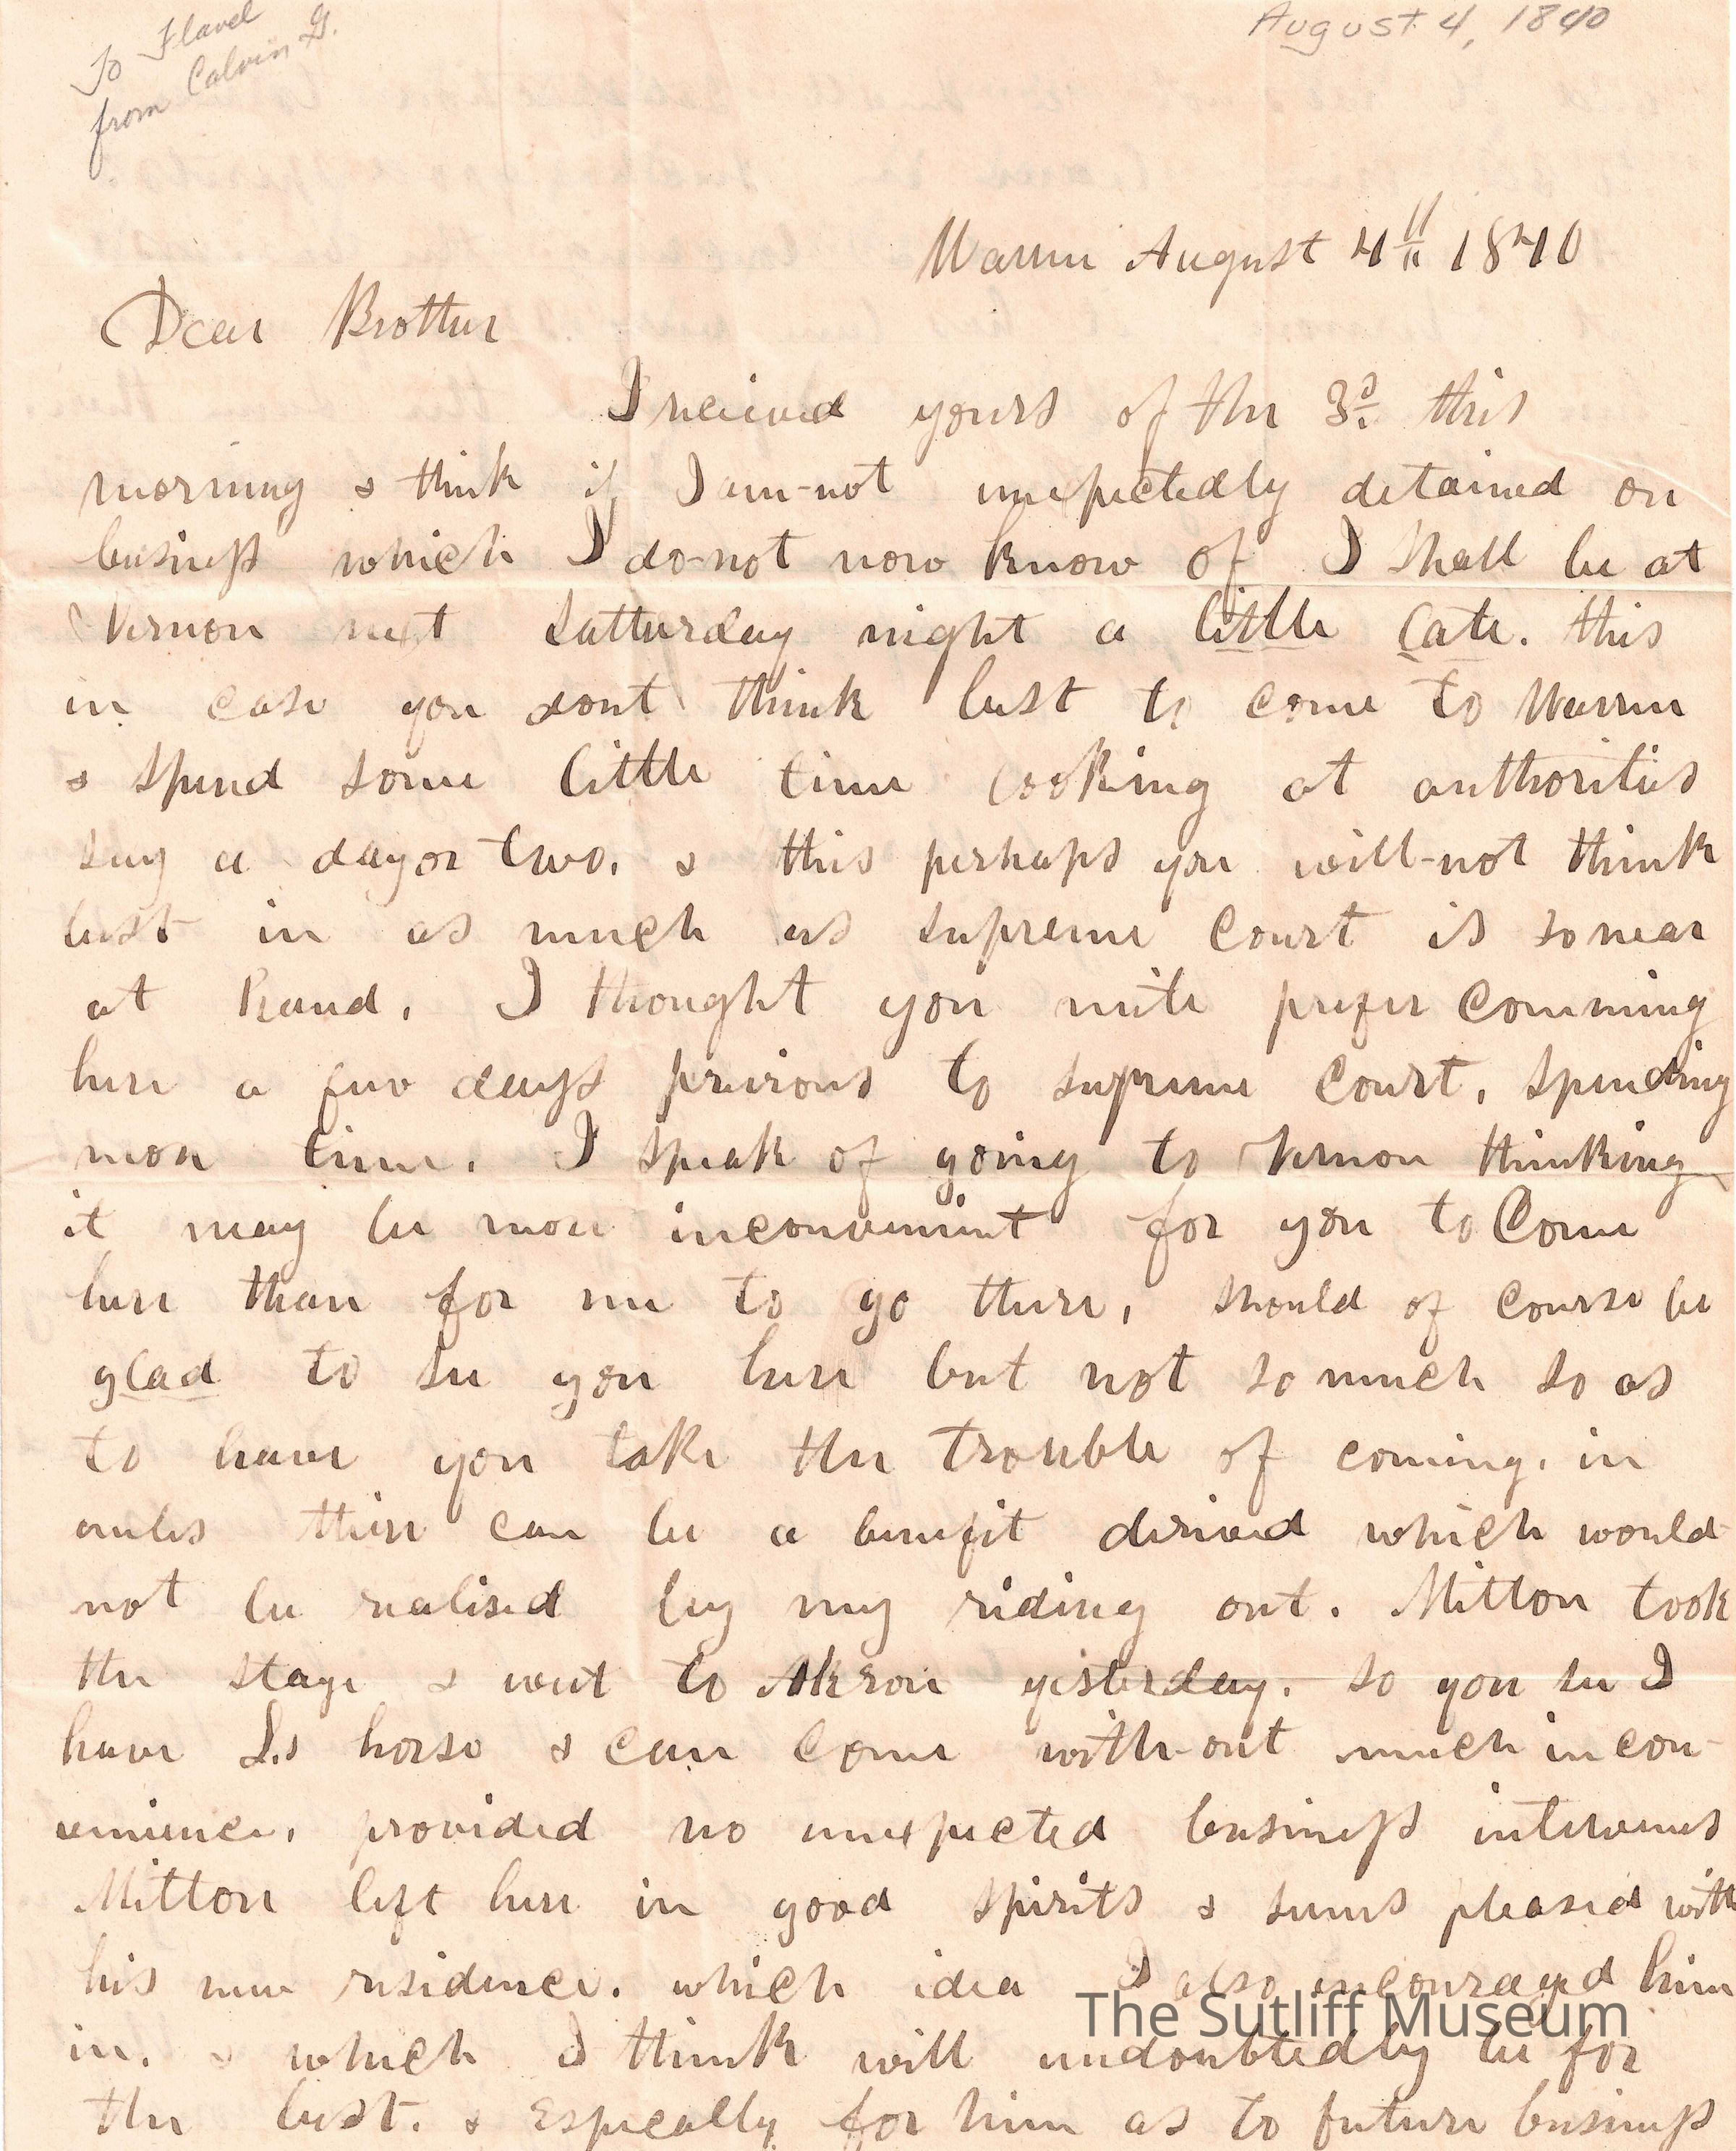 To Flavel
from Calvin G.
August 4, 1840
Warren August 4th 1840
Dear Brother
I received yours of the 3d. this
morning & think if I am-not unexpectedly detained on
business which I do-not now know of I shall be at
Vernon next Satturday night a little late. this
in case you dont think best to come to Warren
& spend some little time looking at authorities
say a day or two. & this perhaps you will-not think
best in as much as supreme Court is so near
at hand. I thought you mite prefer comming
here a few days previous to supreme Court. spending
more time. I speak of going to Vernon thinking
it may be more inconvenient for you to Come
here than for me to go there, should of course be
glad to see you here but not so much so as
to have you take the trouble of coming. in
unles there can be a benefit derived which would
not be realised by my riding out. Milton took
the stage & went to Akron yesterday. so you see I
have his horse & can come with-out much incon-
venience, provided no unexpected business intervenes
Milton left here in good spirits & seems pleased with
his new residence. which idea I also encouraged him
in. & which I think will undoubtedly be for
the best. & Especally for him as to future business
The Sutliff Museum